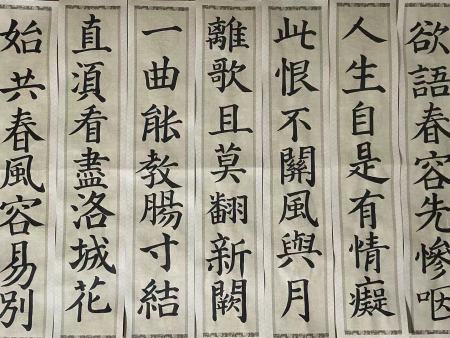 欲語春容先慘咽
人生自是有情癡
此恨不關風與月
離歌且莫翻新闋
一曲能教腸寸結
直須看盡洛城花
始共春風容易別